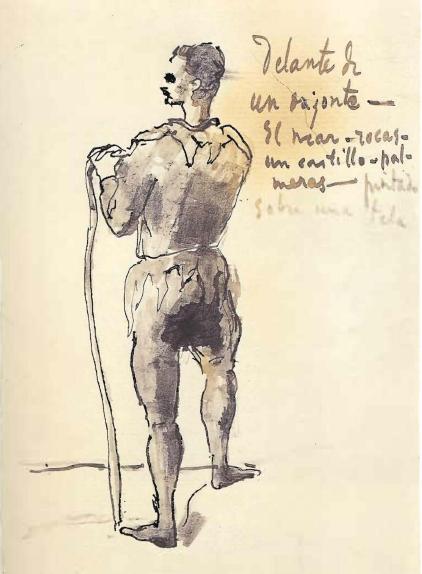 Delante de
un orizonte —
El mar - rocas -
un castillo - pal-
meras — pintado
sobre una tela